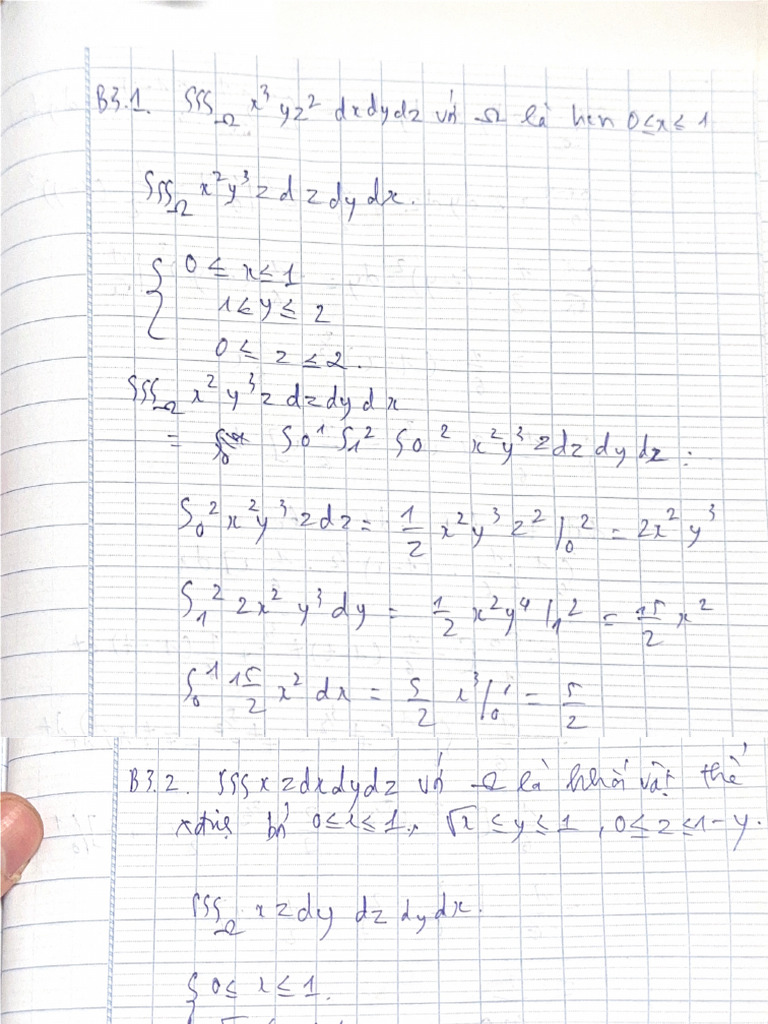 B3.1. ∭_Ω x³yz² dxdydz với Ω là 0≤x≤1
∭_Ω x²y³z dz dy dx.
{ 0 ≤ x ≤ 1
1 ≤ y ≤ 2
0 ≤ z ≤ 2.
∭_Ω x²y³z dz dy dx
= ∫0¹ ∫1² ∫0² x²y³z dz dy dx :
∫0² x²y³z dz = 1/2 x²y³z² |0² = 2x²y³
∫1² 2x²y³ dy = 1/2 x²y⁴ |1² = 15/2 x²
∫0¹ 15/2 x² dx = 5/2 x³ |0¹ = 5/2
B3.2. ∭ xzdxdydz với Ω là khối vật thể
xđịnh bởi 0≤x≤1, √x ≤ y ≤ 1, 0≤z≤1-y.
∭_Ω xzdy dz dy dx.
{ 0 ≤ x ≤ 1.